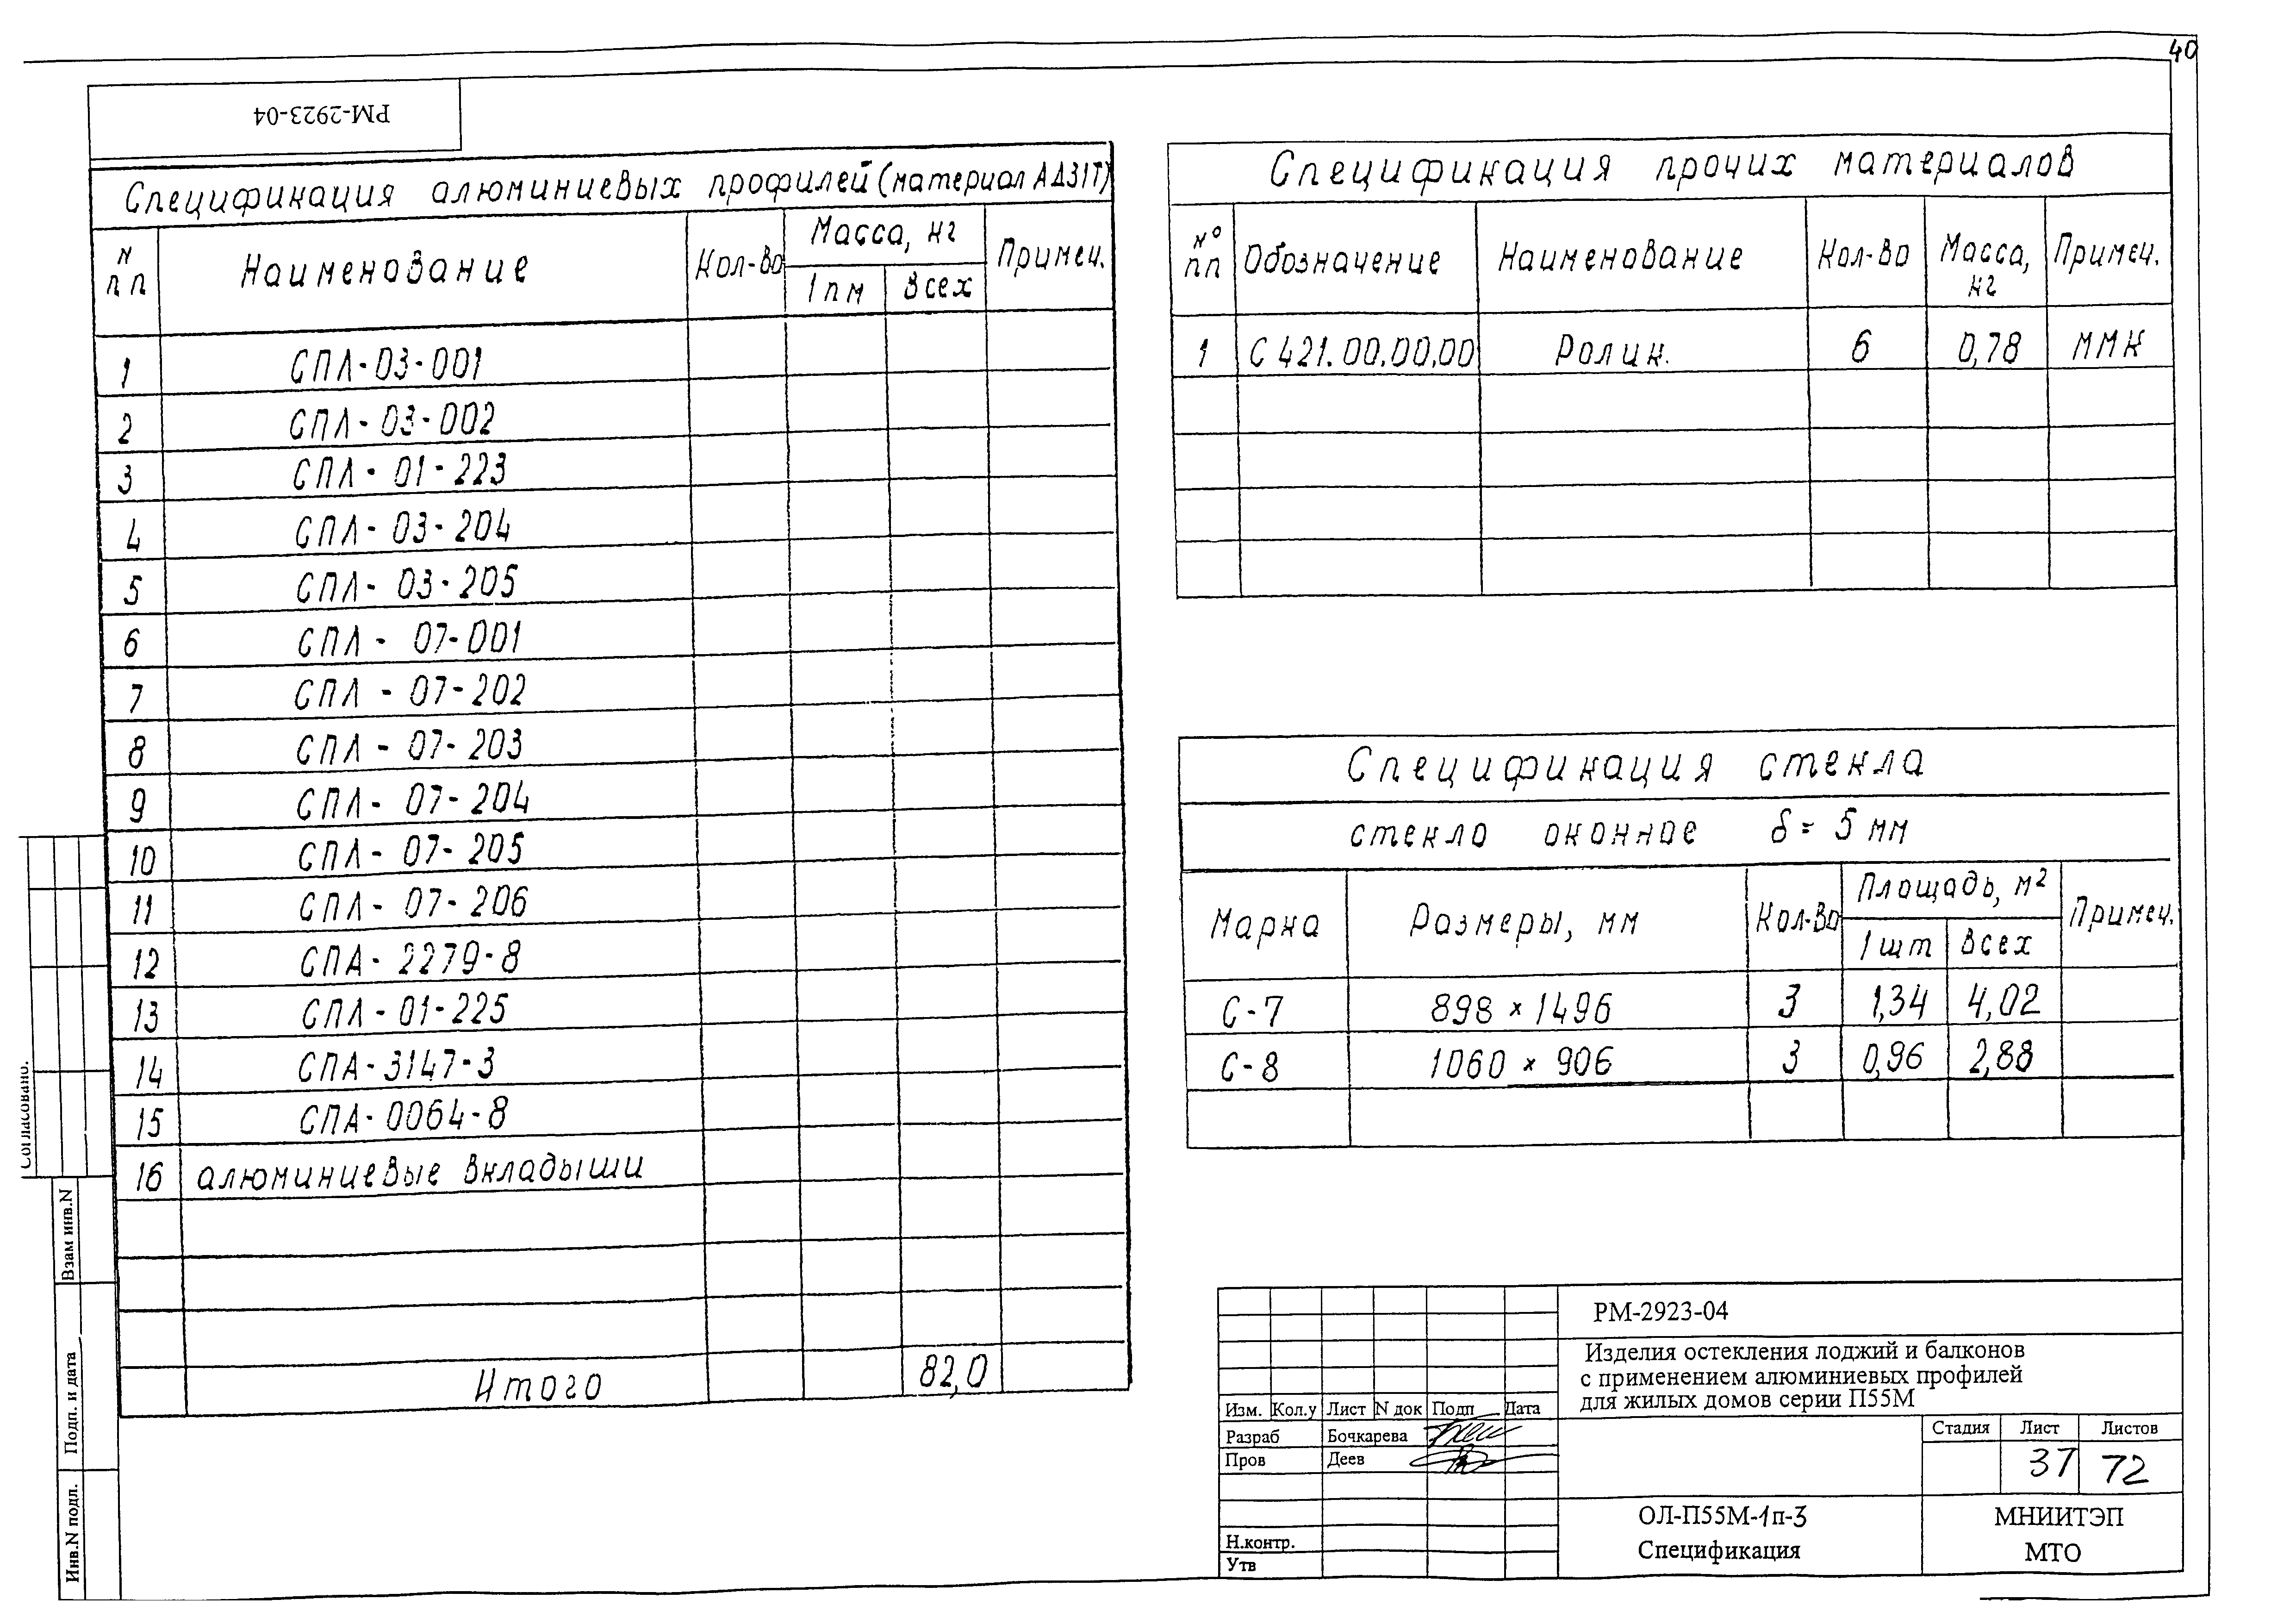 40
РМ-2923-04
Спецификация алюминиевых профилей (материал АД31Т)
N пп Наименование Кол-во Масса, кг Примеч.
1 пм Всех
1 СПЛ-03-001
2 СПЛ-03-002
3 СПЛ-01-223
4 СПЛ-03-204
5 СПЛ-03-205
6 СПЛ-07-001
7 СПЛ-07-202
8 СПЛ-07-203
9 СПЛ-07-204
10 СПЛ-07-205
11 СПЛ-07-206
12 СПА-2279-8
13 СПЛ-01-225
14 СПА-3147-3
15 СПА-0064-8
16 алюминиевые вкладыши
Итого 82,0
Спецификация прочих материалов
№ пп Обозначение Наименование Кол-во Масса, кг Примеч.
1 С 421.00.00.00 Ролик. 6 0,78 ММК
Спецификация стекла
стекло оконное δ = 5 мм
Марка Размеры, мм Кол-во Площадь, м² Примеч.
1 шт Всех
С-7 898 × 1496 3 1,34 4,02
С-8 1060 × 906 3 0,96 2,88
Согласовано.
Взам инв.N
Подп. и дата
Инв.N подл.
РМ-2923-04
Изделия остекления лоджий и балконов
с применением алюминиевых профилей
для жилых домов серии П55М
Изм. Кол.у Лист N док Подп Дата
Разраб Бочкарева
Пров Деев
Н.контр.
Утв
Стадия Лист Листов
37 72
ОЛ-П55М-1п-3
Спецификация
МНИИТЭП
МТО